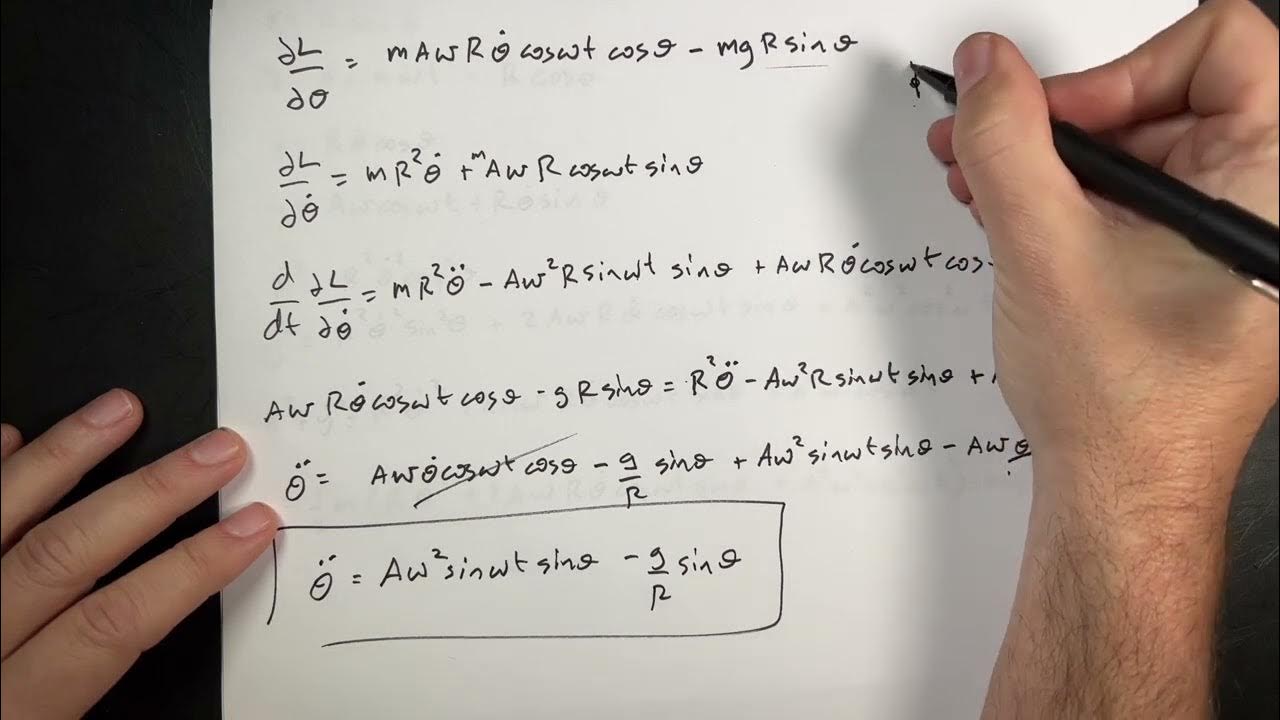 ∂L/∂θ = mAwRθ̇coswt cosθ - mgRsinθ
∂L/∂θ̇ = mR²θ̇ + mAwRcoswt sinθ
d/dt ∂L/∂θ̇ = mR²θ̈ - Aw²Rsinwt sinθ + AwRθ̇coswt cos
AwRθ̇coswt cosθ - gRsinθ = R²θ̈ - Aw²Rsinwt sinθ +
θ̈ = Awθ̇coswt cosθ - g/R sinθ + Aw²sinwt sinθ - Awθ̇
θ̈ = Aw²sinwt sinθ - g/R sinθ